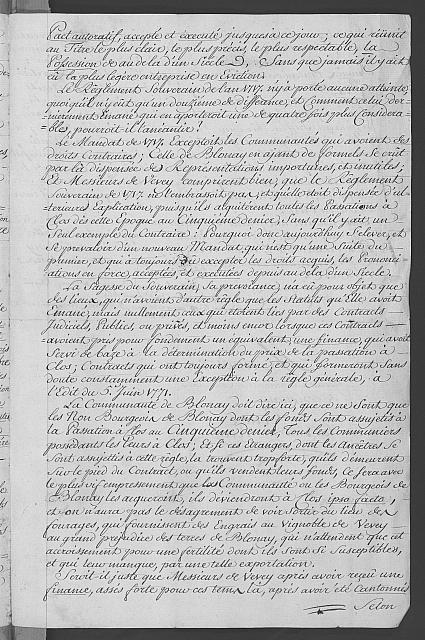 Pact autoratif, accepté et executé jusques à ce jour; ce qui réunit
au Titre le plus clair, le plus précis, le plus respectable, la
Possession de au delà d'un Siècle, Sans que jamais il y ait
eû la plus légère entreprise en Eviction.
Le Règlement Souverain de l'an 1717. n'y a porté aucune atteinte
quoiqu'il n'y eût qu'un douzième de différence, et comment celui der-
nièrement émané qui en apporteroit une de quatre fois plus considera-
ble, pourroit il l'anéantir!
Le Mandat de 1717. Exceptoit les Communautés qui avoient des
droits Contraires; Celle de Blonay en ajant de formels Se crût
par là dispensée des Représentations importunes, et inutiles;
Et Messieurs de Vevey comprirent bien, que le Règlement
Souverain de 1717. ne l'embrassoit pas, et qu'elle étoit dispensée d'ul-
terieures Explication, puis qu'ils aquitèrent toutes les Passations à
Clos dès cette Epoque au Cinquième denier, Sans qu'il y ait un
Seul exemple du Contraire: Pourquoi donc aujourdhuy S'elever, et
Se prevaloir d'un nouveau Mandat qui n'est qu'une Suite du
premier, et qui a toujours excepter les droits acquis, les Prononci-
ations en force, acceptées, et executées depuis au delà d'un Siècle.
La Sagesse du Souverain, Sa prevoiance n'a eû pour objet que
des lieux, qui n'avoient d'autre règle que les Statuts qu'Elle avoit
Emané; mais nullement ceux qui étoient liés par des Contracts
Judiciels, Publics, ou privés, et moins encor lorsque ces Contracts
avoient pris pour fondement un equivalent, une finance, qui avoit
Servi de baze à la détermination du prix de la passation à
Clos; Contracts qui ont toujours formé, et qui formeront Sans
doute constamment une Exception à la règle générale, à
l'Edit du 5. Juin 1771.
La Communauté de Blonay doit dire ici, que ce ne Sont que
les Non Bourgeois de Blonay dont les fonds Sont assujetis à
la Passation à Clos au Cinquième denier, Tous les Communiers
possedants les leurs à Clos, Et Si ces Etrangers, dont les Ancêtres Se
Sont assujettis à cette règle, la trouvent trop forte, qu'ils demeurent
Sur le pied du Contract, ou qu'ils vendent leurs fonds, Ce Sera avec
le plus vif empressement que la Communauté ou les Bourgeois de
Blonay les aqueront, ils deviendront à Clos ipso facto;
et on n'aura pas le desagrement de voir Sortir du lieu des
fourages, qui fournissent des Engrais au Vignoble de Vevey
au grand prejudice des terres de Blonay, qui n'attendent que cet
accroissement pour une fertilité dont ils Sont Si Susceptibles,
et qui leur manque, par une telle exportation.
Seroit il juste que Messieurs de Vevey après avoir reçû une
finance, assés forte pour ces tems là, après avoir été Cantonnés
Selon